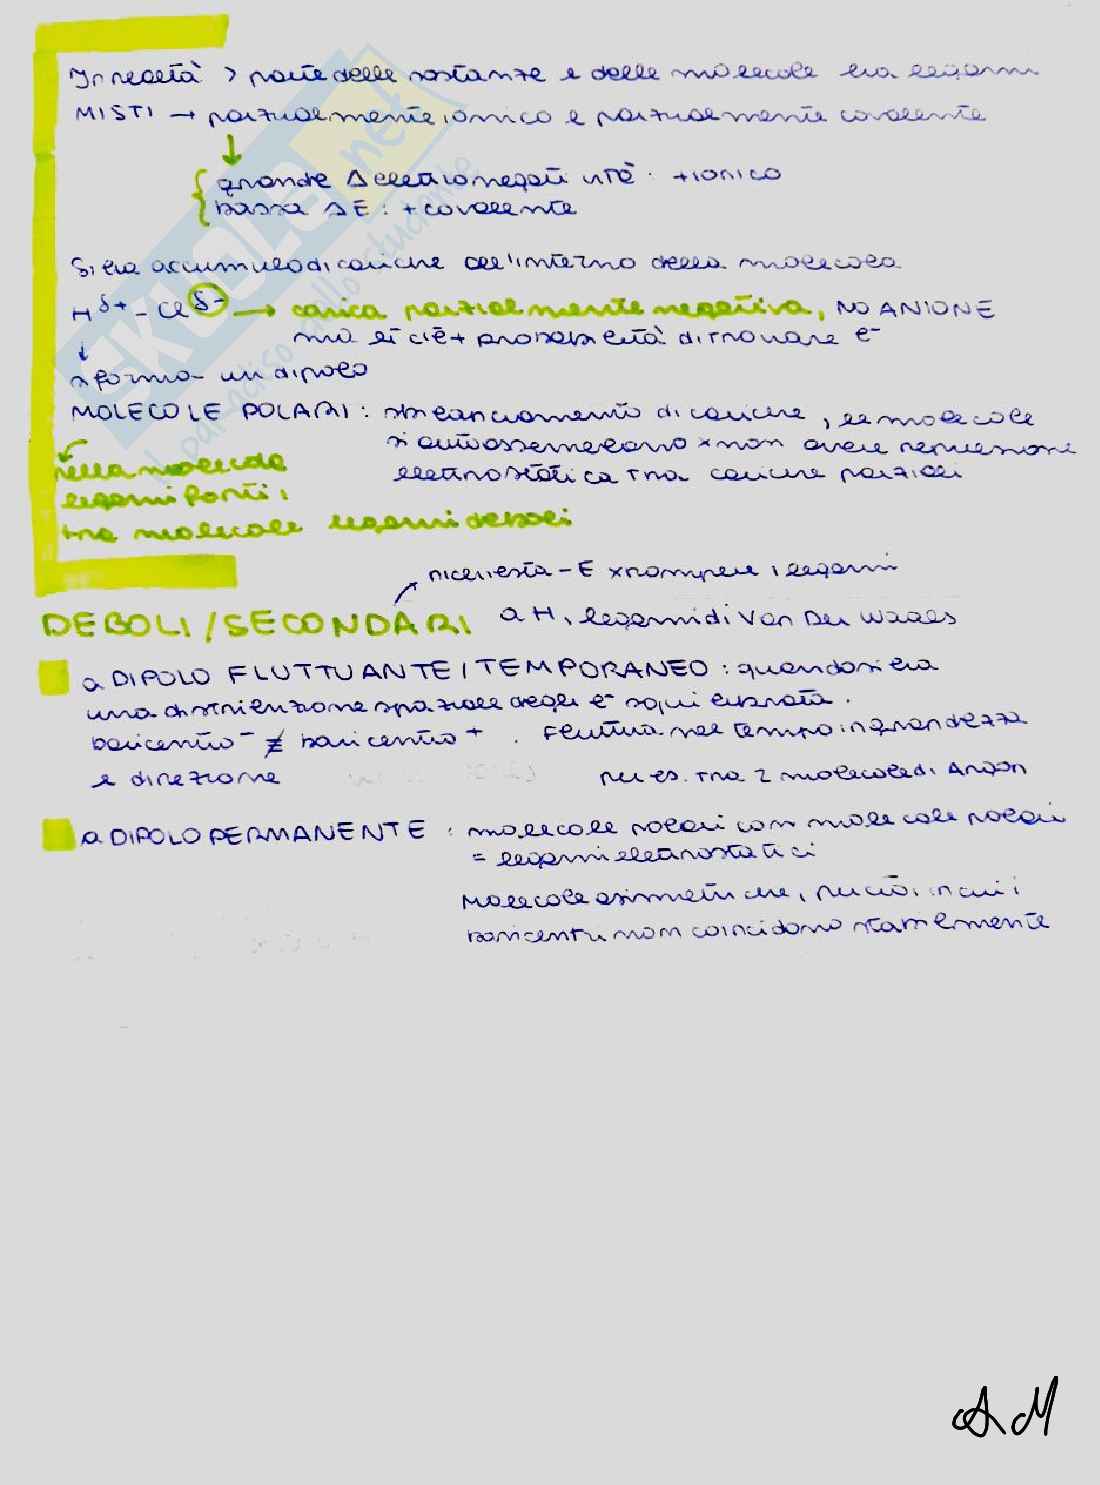 In realtà > parte delle sostanze e delle molecole ha legami
MISTI → parzialmente ionico e parzialmente covalente
grande Δ elettronegatività: + ionico
bassa ΔE: + covalente
Si ha accumulo di cariche all'interno della molecola
H δ+ - Cl δ- → carica parzialmente negativa, NO ANIONE
ma lì c'è + probabilità di trovare e-
si forma un dipolo
MOLECOLE POLARI: sbilanciamento di cariche, le molecole
si autoassemblano x non avere repulsione
elettrostatica tra cariche parziali
nella molecola
legami forti,
tra molecole legami deboli
richiesta - E x rompere i legami
DEBOLI/SECONDARI a H, legami di Van Der Waals
a DIPOLO FLUTTUANTE/TEMPORANEO: quando si ha
una distribuzione spaziale degli e- squilibrata.
baricentro - ≠ baricentro +. Fluttua nel tempo in grandezza
e direzione per es. tra 2 molecole di Argon
a DIPOLO PERMANENTE: molecole polari con molecole polari
= legami elettrostatici
Molecole asimmetriche, perciò, in cui i
baricentri non coincidono stabilmente
SKUOLA.net
il paradiso dello studente
AM